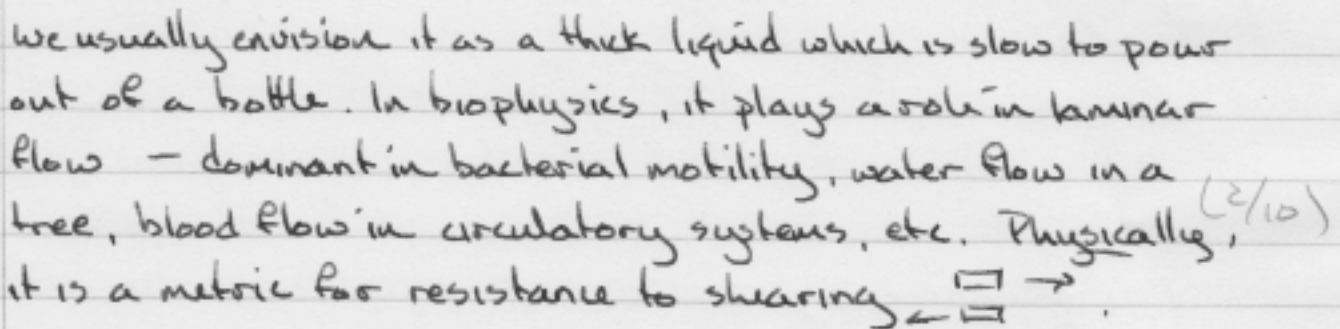 we usually envision it as a thick liquid which is slow to pour
out of a bottle. In biophysics, it plays a role in laminar
flow – dominant in bacterial motility, water flow in a
tree, blood flow in circulatory systems, etc. Physically, (2/10)
it is a metric for resistance to shearing → ← .